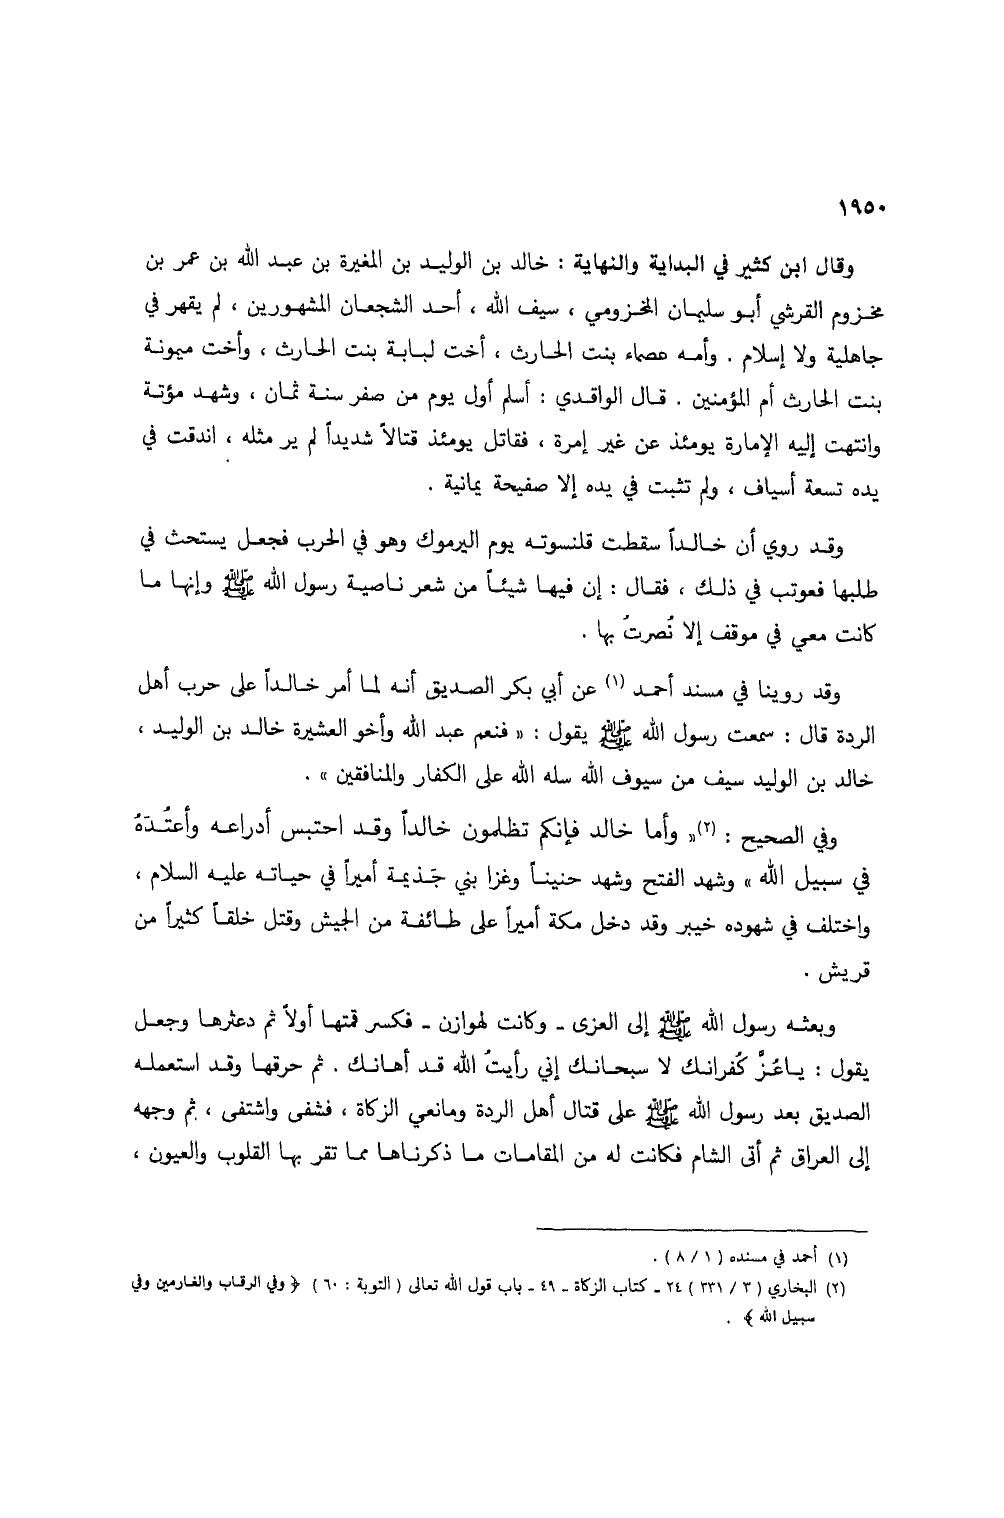 ١٩٥٠
وقال ابن كثير في البداية والنهاية : خالد بن الوليد بن المغيرة بن عبد الله بن عمر بن
مخزوم القرشي أبو سليمان المخزومي ، سيف الله ، أحد الشجعان المشهورين ، لم يقهر في
جاهلية ولا إسلام . وأمه عصماء بنت الحارث ، أخت لبابة بنت الحارث ، وأخت ميمونة
بنت الحارث أم المؤمنين . قال الواقدي : أسلم أول يوم من صفر سنة ثمان ، وشهد مؤتة
وانتهت إليه الإمارة يومئذ عن غير إمرة ، فقاتل يومئذ قتالاً شديداً لم ير مثله ، اندقت في
يده تسعة أسياف ، ولم تثبت في يده إلا صفيحة يمانية .
وقد روي أن خالداً سقطت قلنسوته يوم اليرموك وهو في الحرب فجعل يستحث في
طلبها فعوتب في ذلك ، فقال : إن فيها شيئاً من شعر ناصية رسول الله ﷺ وإنها ما
كانت معي في موقف إلا نُصرتُ بها .
وقد روينا في مسند أحمد (١) عن أبي بكر الصديق أنه لما أمر خالداً على حرب أهل
الردة قال : سمعت رسول الله ﷺ يقول : « فنعم عبد الله وأخو العشيرة خالد بن الوليد ،
خالد بن الوليد سيف من سيوف الله سله الله على الكفار والمنافقين » .
وفي الصحيح : (٢)« وأما خالد فإنكم تظلمون خالداً وقد احتبس أدراعه وأعتُدَهُ
في سبيل الله » وشهد الفتح وشهد حنيناً وغزا بني جَذيمة أميراً في حياته عليه السلام ،
واختلف في شهوده خيبر وقد دخل مكة أميراً على طائفة من الجيش وقتل خلقاً كثيراً من
قريش .
وبعثه رسول الله ﷺ إلى العزى ـ وكانت لهوازن ـ فكسر قمتها أولاً ثم دعثرها وجعل
يقول : ياعُزَّ كُفرانك لا سبحانك إني رأيتُ الله قد أهانك . ثم حرقها وقد استعمله
الصديق بعد رسول الله ﷺ على قتال أهل الردة ومانعي الزكاة ، فشفى واشتفى ، ثم وجهه
إلى العراق ثم أتى الشام فكانت له من المقامات ما ذكرناها مما تقر بها القلوب والعيون ،
(١) أحمد في مسنده ( ١ / ٨ ) .
(٢) البخاري ( ٣ / ٣٣١ ) ٢٤ ـ كتاب الزكاة ـ ٤٩ ـ باب قول الله تعالى ( التوبة : ٦٠ ) ﴿ وفي الرقاب والغارمين وفي
سبيل الله ﴾ .